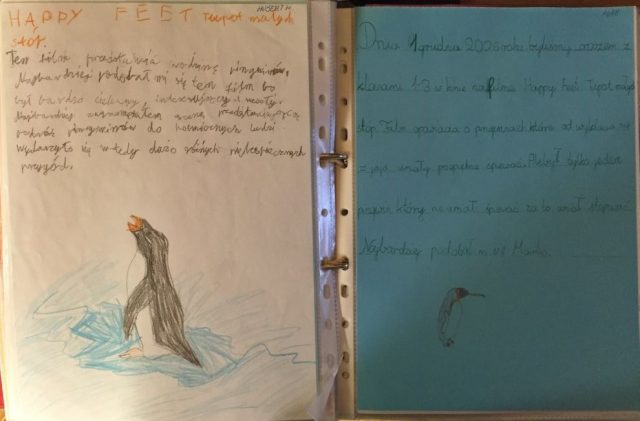 HUBERT M.
HAPPY FEET Tupot małych
stóp
Ten film przedstawia rodzinę pingwinów.
Najbardziej podobał mi się ten film bo
był bardzo ciekawy, interesujący i wesoły.
Najbardziej scenę przedstawiającą
podróż pingwinów do ludzi
Wydarzyło się wtedy dużo różnych niebezpiecznych
przygód.
Dnia 1 grudnia 2006 roku byliśmy razem z
klasami 1-3 w kinie na filmie Happy Feet. Tupot małych
stóp. Film opowiada o pingwinach, które od wyklucia się
z jaja umiały pięknie śpiewać. Ale był tylko jeden
pingwin który nie umiał śpiewać za to umiał stepować.
Najbardziej podobał mi się Mambo.